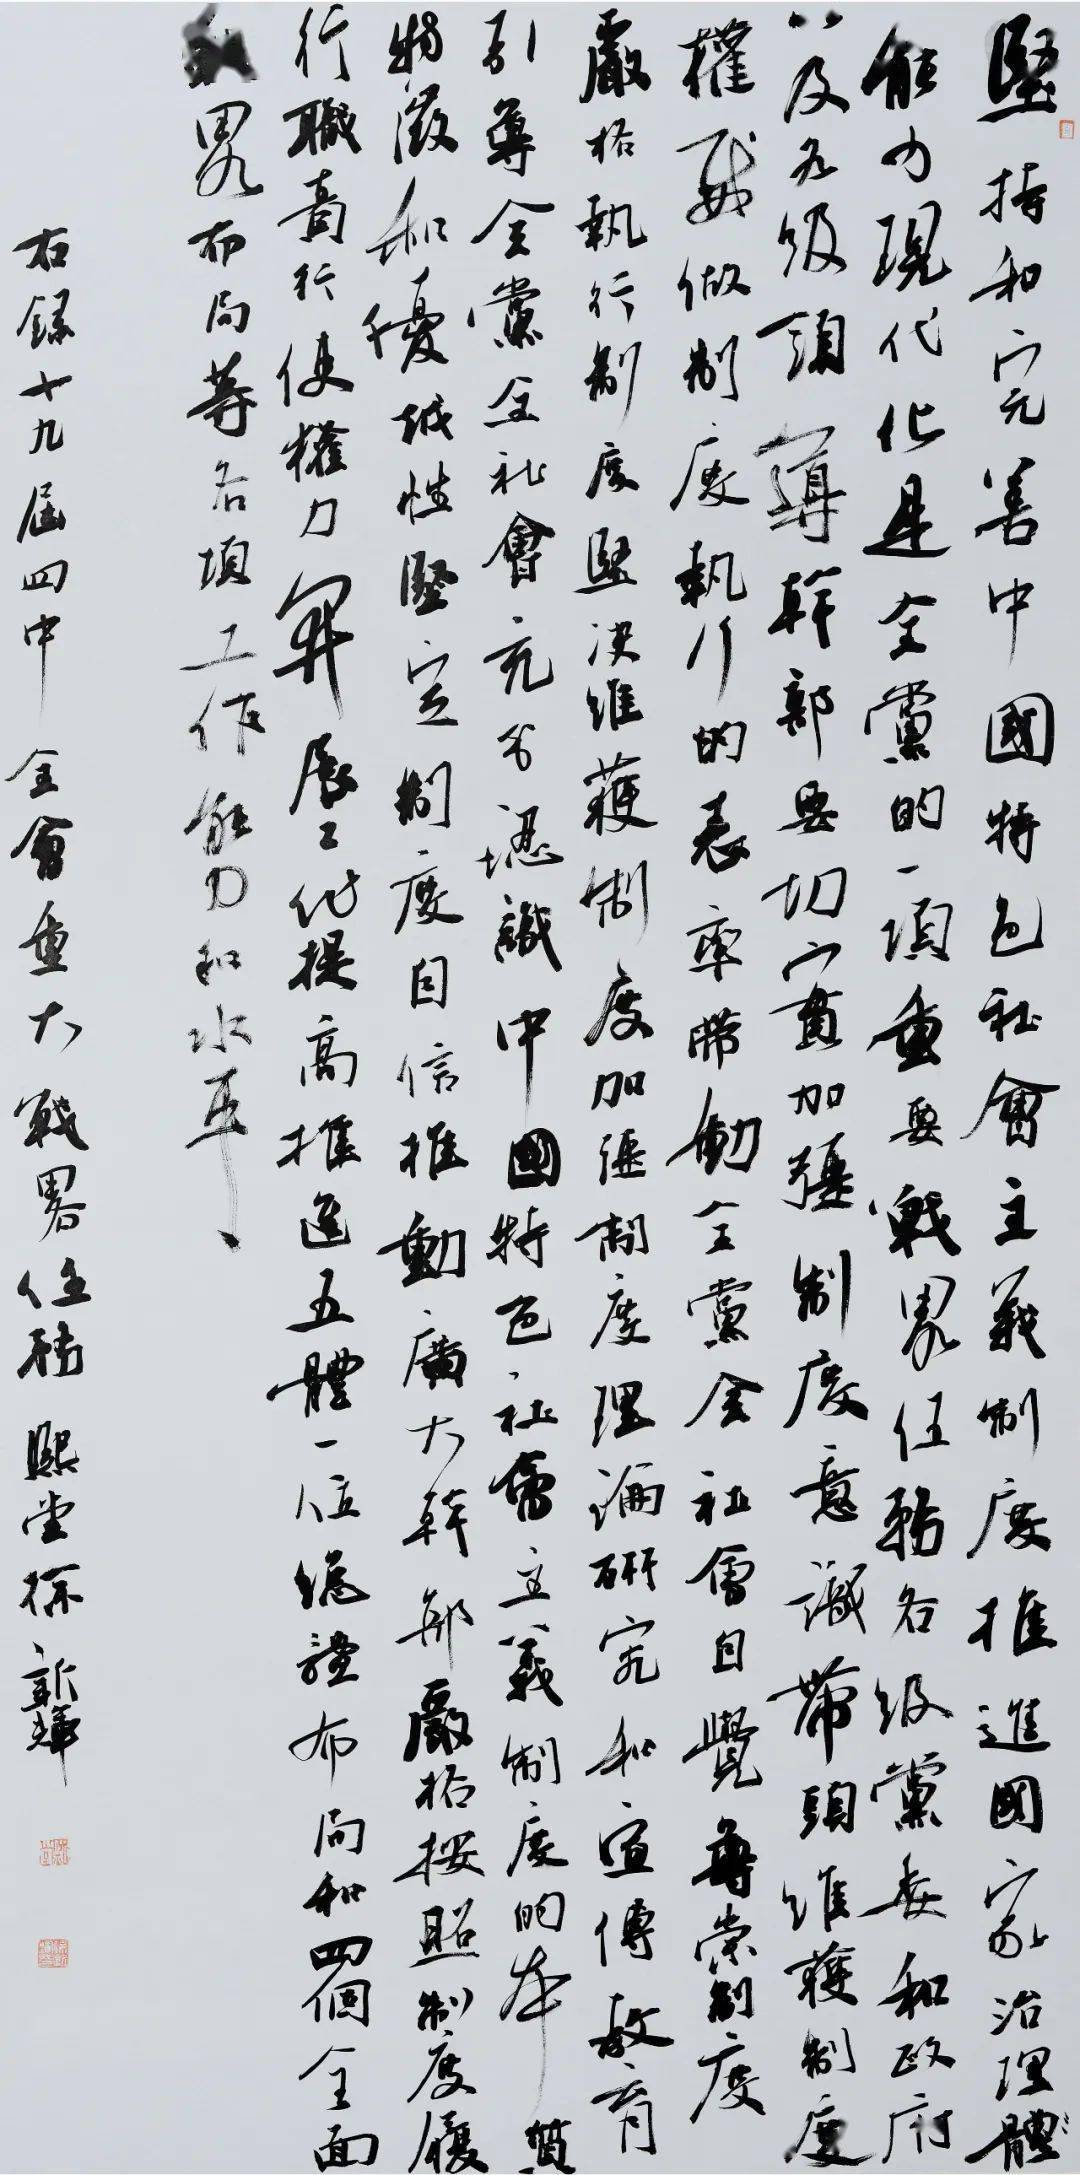 堅持和完善中國特色社會主義制度推進國家治理體
能力現代化是全黨的一項重要戰略任務各級黨委和政府
以及各級領導幹部要切實加強制度意識帶頭維護制度
權威做制度執行的表率帶動全黨全社會自覺尊崇制度
嚴格執行制度堅決維護制度加強制度理論研究和宣傳教育
引導全黨全社會充分認識中國特色社會主義制度的本質
特徵和優越性堅定制度自信推動廣大幹部嚴格按照制度履
行職責行使權力開展工作提高推進五體一位總體布局和四個全面
戰略布局等各項工作能力和水平
右錄十九屆四中全會重大戰略任務熙堂徐新